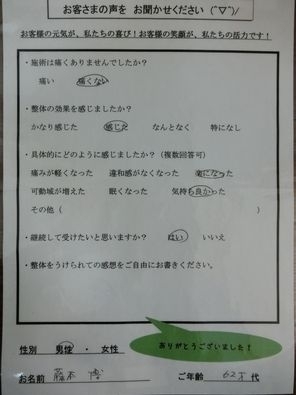 お客さまの声を お聞かせください (^▽^)/
お客様の元気が、私たちの喜び！お客様の笑顔が、私たちの活力です！
・施術は痛くありませんでしたか？
痛い 痛くない
・整体の効果を感じましたか？
かなり感じた 感じた なんとなく 特になし
・具体的にどのように感じましたか？（複数回答可）
痛みが軽くなった 違和感がなくなった 楽になった
可動域が増えた 眠くなった 気持ち良かった
その他（ ）
・継続して受けたいと思いますか？ はい いいえ
・整体をうけられての感想をご自由にお書きください。
ありがとうございました！
性別 男性 ・ 女性
お名前 藤本 博 ご年齢 62才 代